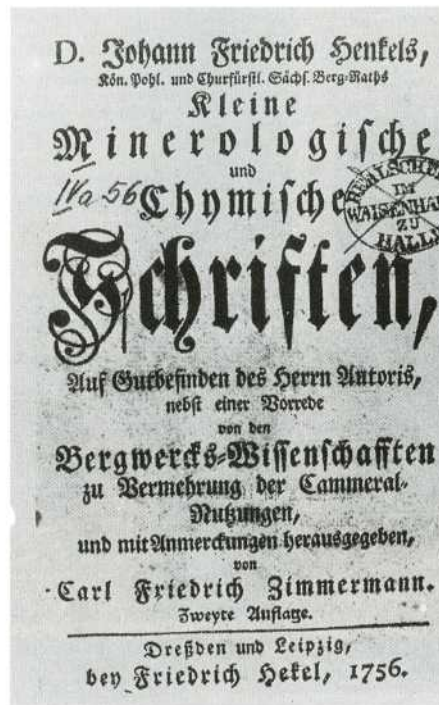 D. Johann Friedrich Henkels,
Kön. Pohl. und Churfürstl. Sächs. Berg-Raths
Kleine
Minerologische
und
IVa 56
Chymische
REALSCHULE
IM
WAISENHAUSE
ZU
HALLE
Schriften,
Auf Gutbefinden des Herrn Autoris,
nebst einer Vorrede
von den
Bergwercks-Wissenschafften
zu Vermehrung der Cammeral-
Nutzungen,
und mit Anmerckungen herausgegeben,
von
Carl Friedrich Zimmermann.
Zweyte Auflage.
Dreßden und Leipzig,
bey Friedrich Hekel, 1756.